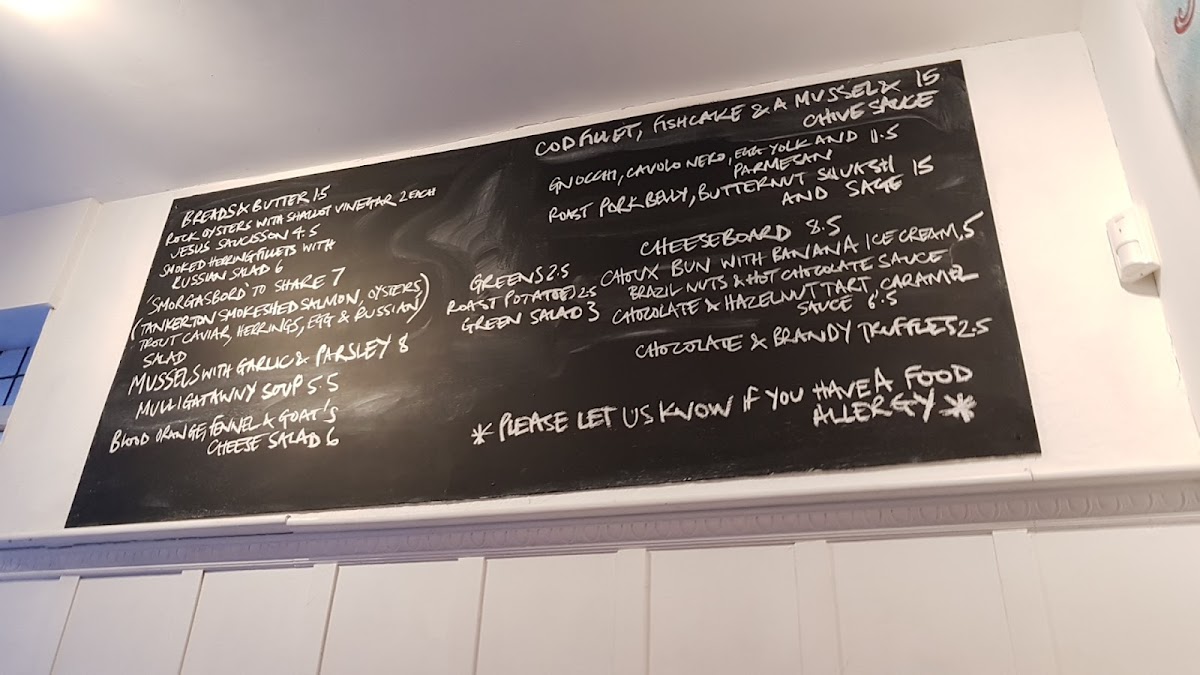 BREADS & BUTTER 1.5
ROCK OYSTERS WITH SHALLOT VINEGAR 2 EACH
JESUS SAUCISSON 4.5
SMOKED HERRING FILLETS WITH
RUSSIAN SALAD 6
'SMORGASBORD' TO SHARE 7
(TANKERTON SMOKESHED SALMON, OYSTERS
TROUT CAVIAR, HERRINGS, EGG & RUSSIAN)
SALAD
MUSSELS WITH GARLIC & PARSLEY 8
MULLIGATAWNY SOUP 5.5
BLOOD ORANGE, FENNEL & GOAT'S
CHEESE SALAD 6
GREENS 2.5
ROAST POTATOES 2.5
GREEN SALAD 3
COD FILLET, FISHCAKE & A MUSSEL & 15
CHIVE SAUCE
GNOCCHI, CAVOLO NERO, EGG YOLK AND 11.5
PARMESAN
ROAST PORK BELLY, BUTTERNUT SQUASH 15
AND SAGE
CHEESEBOARD 8.5
CHOUX BUN WITH BANANA ICE CREAM, 5
BRAZIL NUTS & HOT CHOCOLATE SAUCE
CHOCOLATE & HAZELNUT TART, CARAMEL
SAUCE 6.5
CHOCOLATE & BRANDY TRUFFLES 2.5
* PLEASE LET US KNOW IF YOU HAVE A FOOD
ALLERGY *